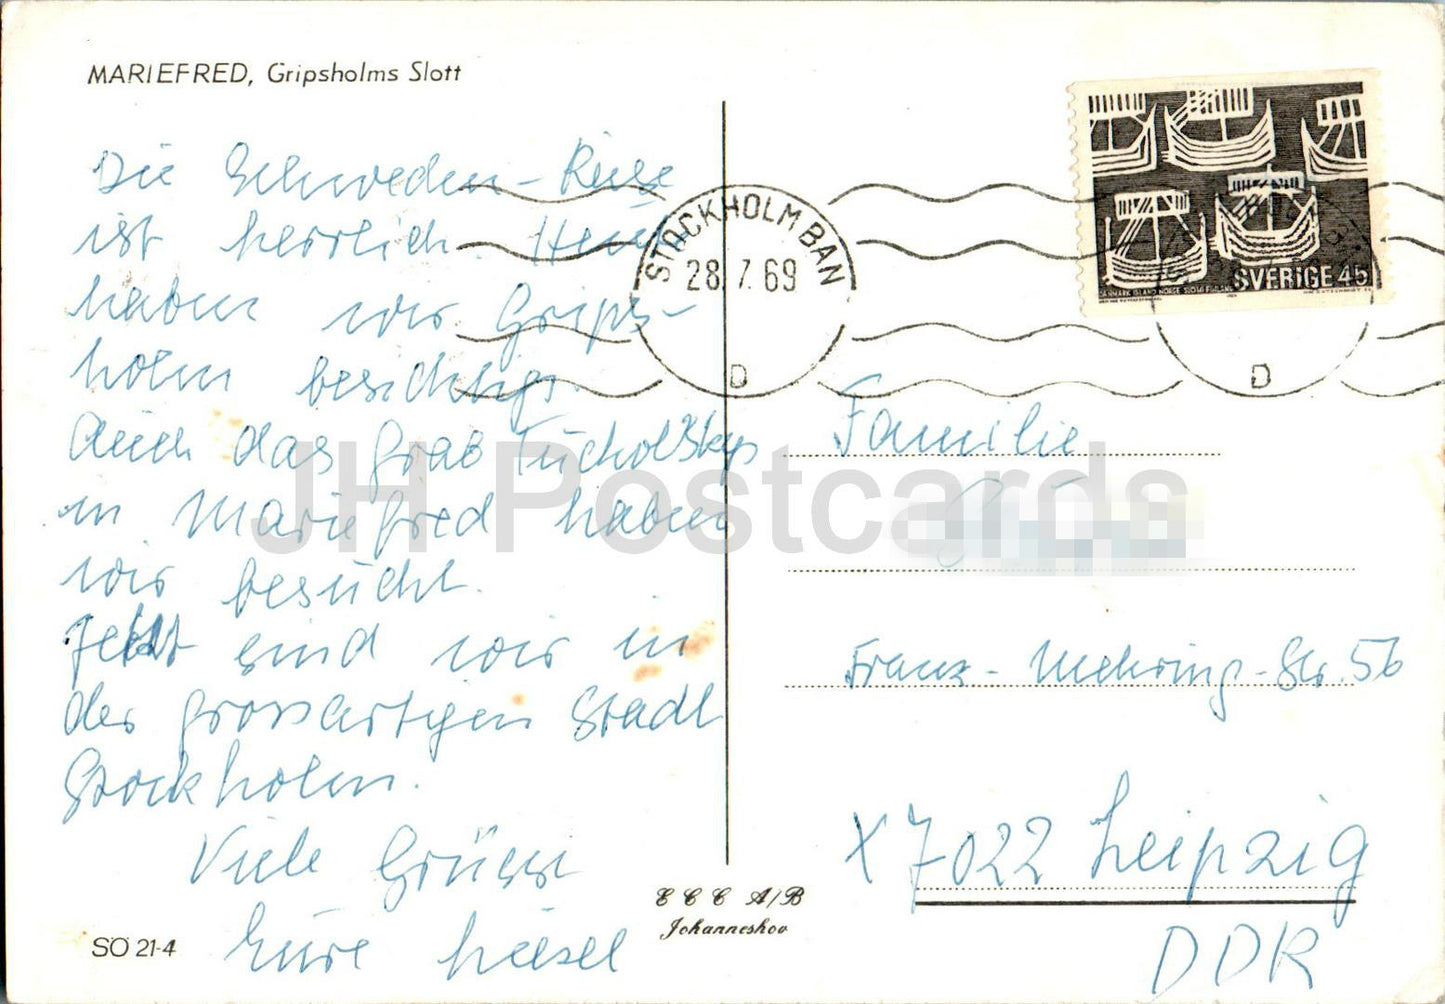 MARIEFRED, Gripsholms Slott
Die Schweden-Reise
ist herrlich. Heute
haben wir Grips-
holm besichtigt.
Auch das Grab Tucholskys
in Mariefred haben
wir besucht.
Jetzt sind wir in
der grossartigen Stadt
Stockholm.
Viele Grüsse
Eure Liesel
SÖ 21-4
ECC A/B
Johanneshov
STOCKHOLM BAN
28.7.69
D
D
SVERIGE 45
DANMARK ISLAND NORGE SUOMI FINLAND
Familie
Franz-Mehring-Str. 56
X 7022 Leipzig
DDR
JH Postcards